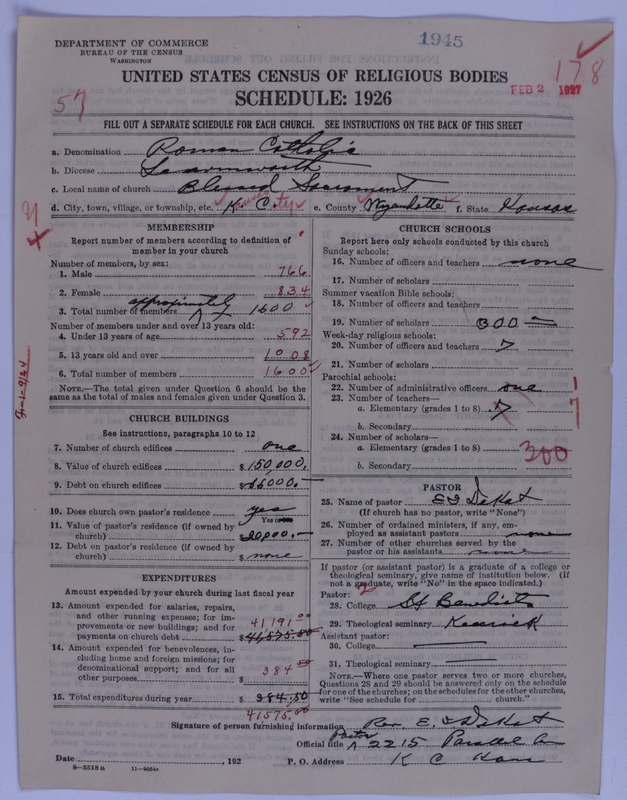 DEPARTMENT OF COMMERCE
BUREAU OF THE CENSUS
WASHINGTON
1945
178
FEB 2 1927
UNITED STATES CENSUS OF RELIGIOUS BODIES
SCHEDULE: 1926
57
FILL OUT A SEPARATE SCHEDULE FOR EACH CHURCH. SEE INSTRUCTIONS ON THE BACK OF THIS SHEET
a. Denomination Roman Catholic
b. Diocese Leavenworth
c. Local name of church Blessed Sacrament
d. City, town, village, or township, etc. K. City e. County Wyandotte f. State Kansas
MEMBERSHIP
Report number of members according to definition of
member in your church
Number of members, by sex:
1. Male 766
2. Female 834
approximately
3. Total number of members 1600
Number of members under and over 13 years old:
4. Under 13 years of age 592
5. 13 years old and over 1008
6. Total number of members 1600
NOTE.—The total given under Question 6 should be the
same as the total of males and females given under Question 3.
CHURCH BUILDINGS
See instructions, paragraphs 10 to 12
7. Number of church edifices one
8. Value of church edifices $150,000.
9. Debt on church edifices $66000.—
10. Does church own pastor's residence? yes
Yes or no
11. Value of pastor's residence (if owned by
church) $20,000.—
12. Debt on pastor's residence (if owned by
church) $ none
EXPENDITURES
Amount expended by your church during last fiscal year
13. Amount expended for salaries, repairs,
and other running expenses; for im-
provements on new buildings; and for
payments on church debt 41191.00
$41575.00
14. Amount expended for benevolences, in-
cluding home and foreign missions; for
denominational support; and for all
other purposes $ 384.50
15. Total expenditures during year $ 384.50
41575.00
CHURCH SCHOOLS
Report here only schools conducted by this church
Sunday schools:
16. Number of officers and teachers none
17. Number of scholars
Summer vacation Bible schools:
18. Number of officers and teachers
19. Number of scholars 300 —
Week-day religious schools:
20. Number of officers and teachers 7
21. Number of scholars
Parochial schools:
22. Number of administrative officers one 1
23. Number of teachers—
a. Elementary (grades 1 to 8) 7 7
b. Secondary
24. Number of scholars—
a. Elementary (grades 1 to 8) 300
b. Secondary
PASTOR
25. Name of pastor
(If church has no pastor, write "None")
26. Number of ordained ministers, if any, em-
ployed as assistant pastors none
27. Number of other churches served by the
pastor or his assistants none
If pastor (or assistant pastor) is a graduate of a college or
theological seminary, give name of institution below. (If
not a graduate, write "No" in the space indicated.)
Pastor: 2
28. College St Benedicts
29. Theological seminary Kenrick
Assistant pastor:
30. College —
31. Theological seminary —
NOTE.—Where one pastor serves two or more churches,
Questions 28 and 29 should be answered only on the schedule
for one of the churches; on the schedules for the other churches,
write "See schedule for church."
Signature of person furnishing information Rev. E.
Pastor
Official title 2215 Parallel Av
Date , 192 P. O. Address K C Kans
8—3518 a 11—9084a